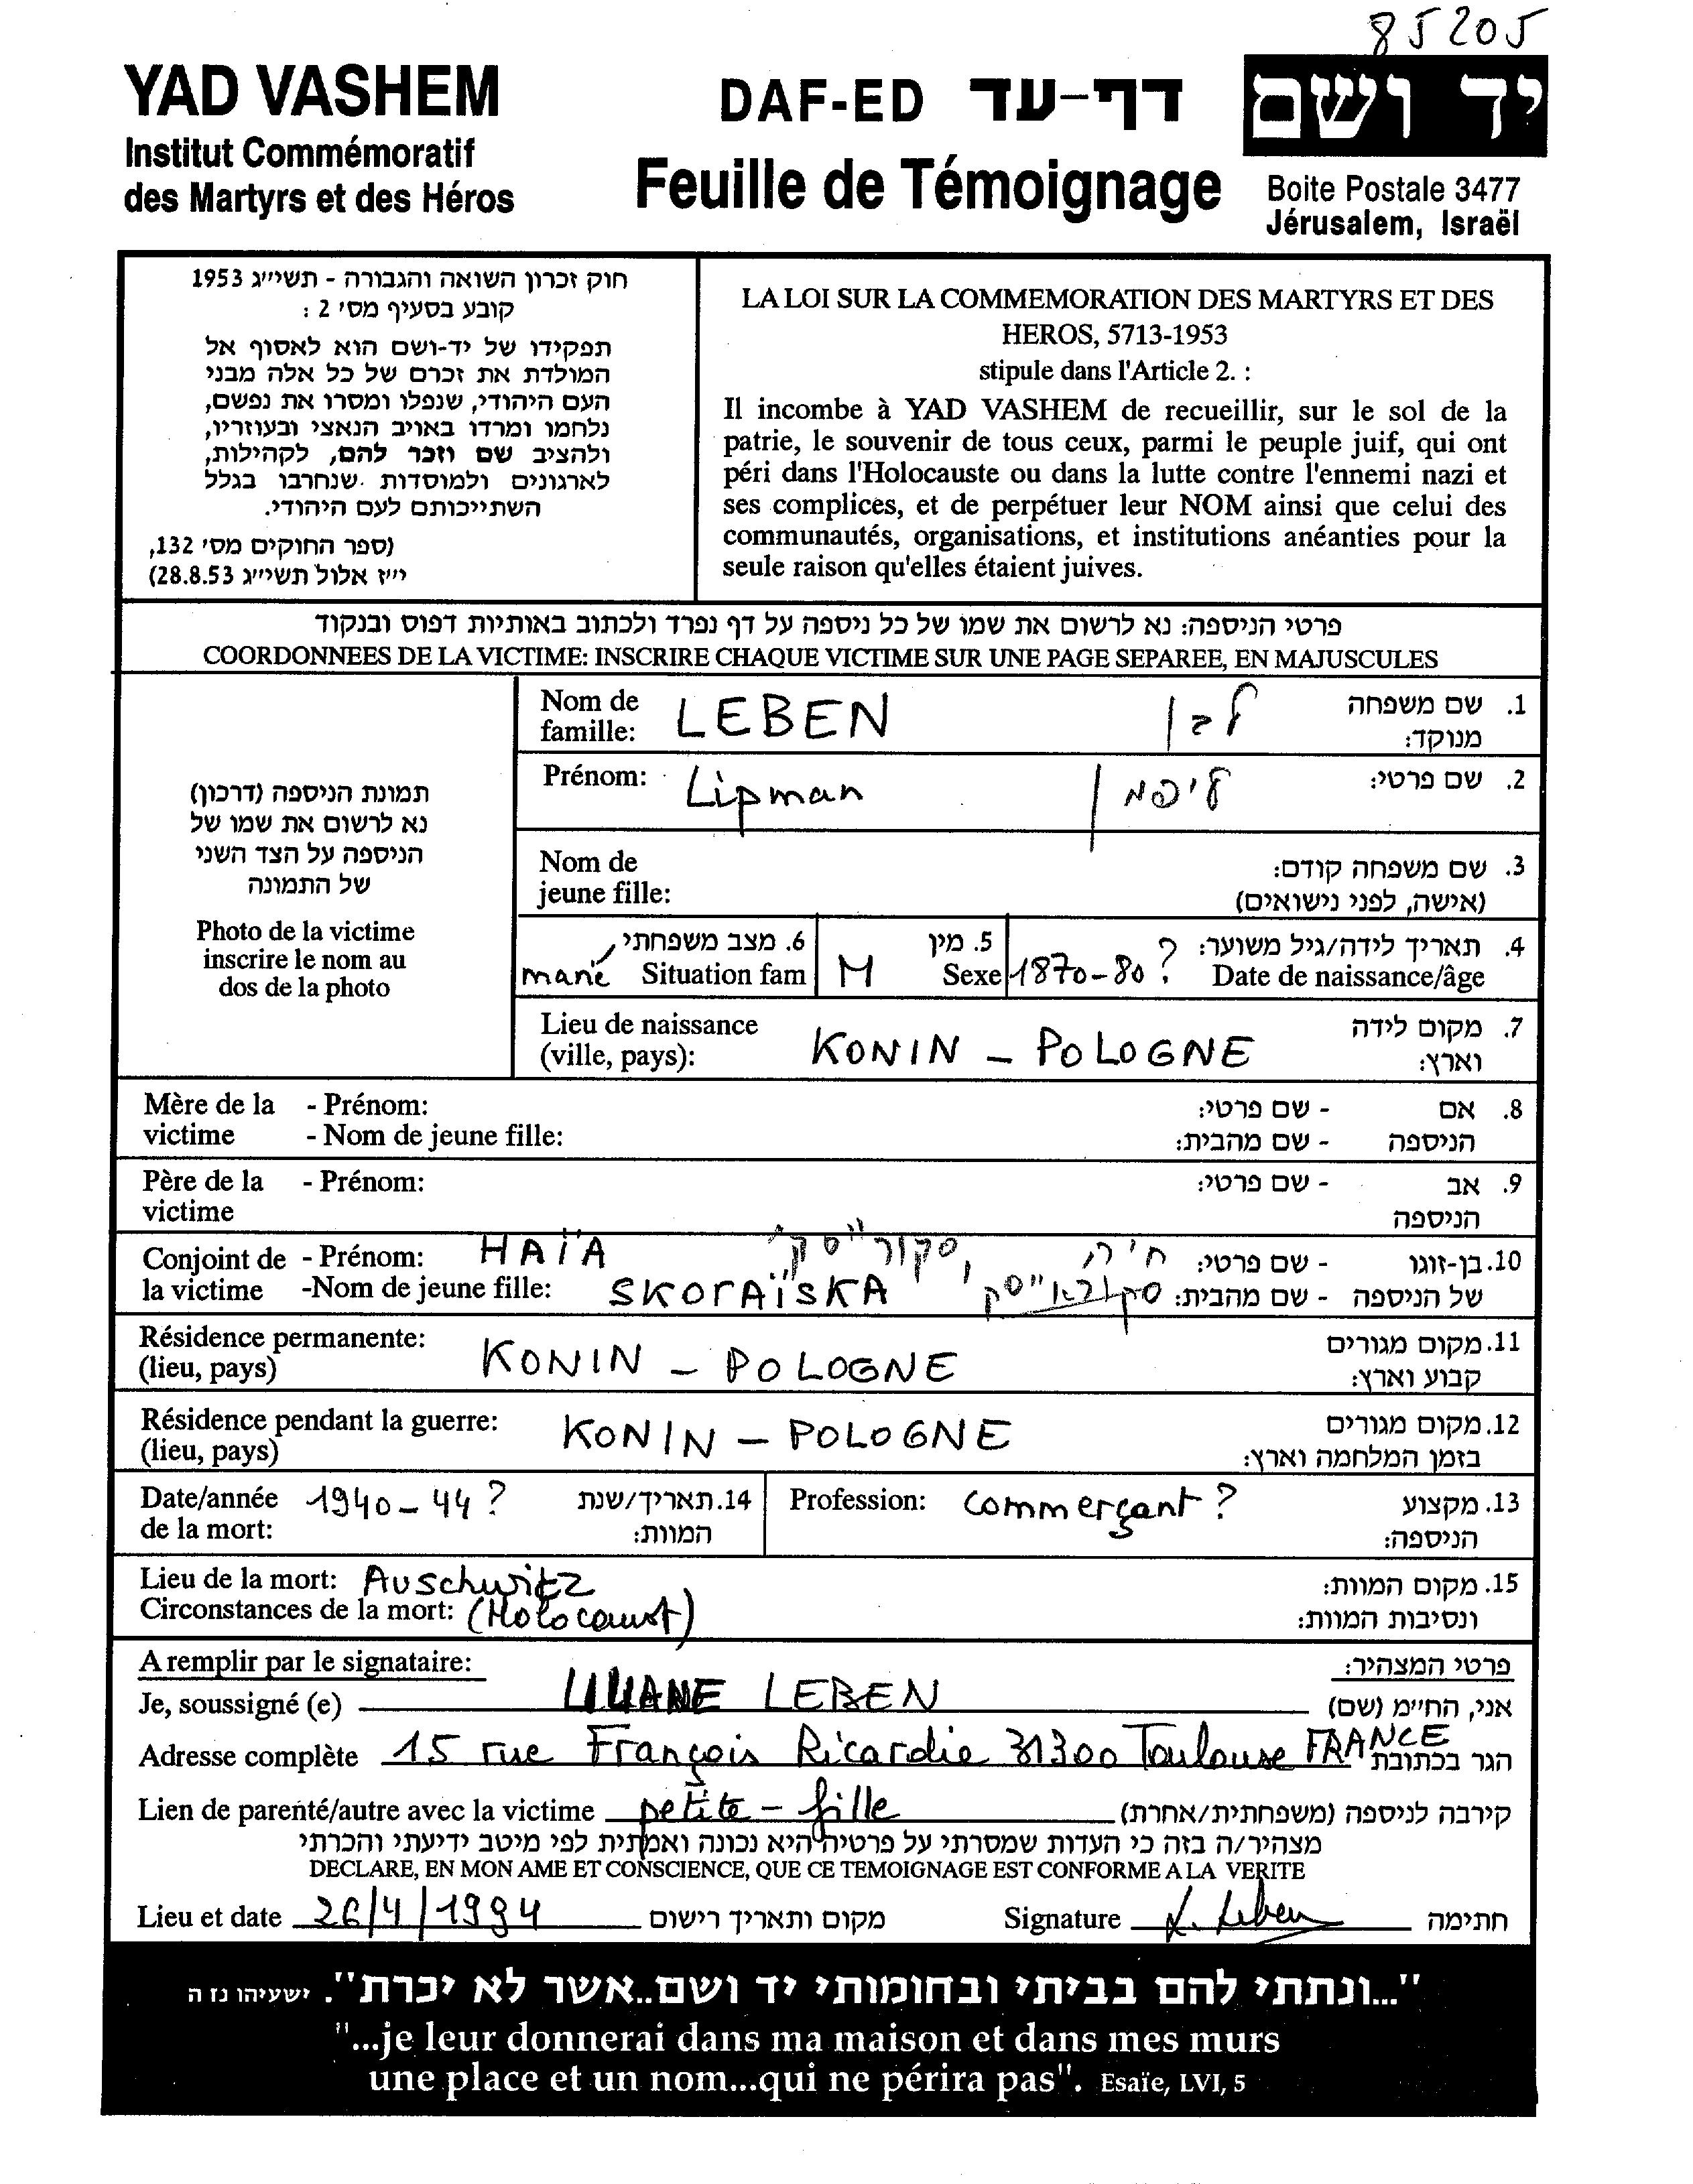 85205
YAD VASHEM
Institut Commémoratif
des Martyrs et des Héros
DAF-ED דף-עד
Feuille de Témoignage
יד ושם
Boite Postale 3477
Jérusalem, Israël
חוק זכרון השואה והגבורה - תשי״ג 1953
קובע בסעיף מס׳ 2 :
תפקידו של יד-ושם הוא לאסוף אל
המולדת את זכרם של כל אלה מבני
העם היהודי, שנפלו ומסרו את נפשם,
נלחמו ומרדו באויב הנאצי ובעוזריו,
ולהציב שם וזכר להם, לקהילות,
לארגונים ולמוסדות שנחרבו בגלל
השתייכותם לעם היהודי.
(ספר החוקים מס׳ 132,
י״ז אלול תשי״ג 28.8.53)
LA LOI SUR LA COMMEMORATION DES MARTYRS ET DES
HEROS, 5713-1953
stipule dans l'Article 2. :
Il incombe à YAD VASHEM de recueillir, sur le sol de la
patrie, le souvenir de tous ceux, parmi le peuple juif, qui ont
péri dans l'Holocauste ou dans la lutte contre l'ennemi nazi et
ses complices, et de perpétuer leur NOM ainsi que celui des
communautés, organisations, et institutions anéanties pour la
seule raison qu'elles étaient juives.
פרטי הניספה: נא לרשום את שמו של כל ניספה על דף נפרד ולכתוב באותיות דפוס ובנקוד
COORDONNEES DE LA VICTIME: INSCRIRE CHAQUE VICTIME SUR UNE PAGE SEPAREE, EN MAJUSCULES
תמונת הניספה (דרכון)
נא לרשום את שמו של
הניספה על הצד השני
של התמונה
Photo de la victime
inscrire le nom au
dos de la photo
Nom de famille: LEBEN לבן 1. שם משפחה
מנוקד:
Prénom: Lipman ליפמן 2. שם פרטי:
Nom de
jeune fille:
3. שם משפחה קודם:
(אישה, לפני נישואים)
6. מצב משפחתי 5. מין 4. תאריך לידה/גיל משוער:
marié Situation fam M Sexe 1870-80 ? Date de naissance/âge
Lieu de naissance
(ville, pays): KONIN - POLOGNE
7. מקום לידה
וארץ:
Mère de la victime - Prénom: - שם פרטי: 8. אם
- Nom de jeune fille: - שם מהבית: הניספה
Père de la victime - Prénom: - שם פרטי: 9. אב
הניספה
Conjoint de - Prénom: HAÏA חיה - שם פרטי: 10. בן-זוגו
la victime -Nom de jeune fille: SKORAÏSKA - שם מהבית: של הניספה
Résidence permanente:
(lieu, pays) KONIN - POLOGNE
11. מקום מגורים
קבוע וארץ:
Résidence pendant la guerre:
(lieu, pays) KONIN - POLOGNE
12. מקום מגורים
בזמן המלחמה וארץ:
Date/année
de la mort: 1940-44 ?
14. תאריך/שנת
המוות:
Profession: commerçant ?
13. מקצוע
הניספה:
Lieu de la mort: Auschwitz 15. מקום המוות:
Circonstances de la mort: (Holocaust) ונסיבות המוות:
A remplir par le signataire: פרטי המצהיר:
Je, soussigné (e) LILIANE LEBEN אני, החי״מ (שם)
Adresse complète 15 rue François Ricardie 31300 Toulouse FRANCE הגר בכתובת
Lien de parenté/autre avec la victime petite-fille קירבה לניספה (משפחתית/אחרת)
מצהיר/ה בזה כי העדות שמסרתי על פרטיה היא נכונה ואמתית לפי מיטב ידיעתי והכרתי
DECLARE, EN MON AME ET CONSCIENCE, QUE CE TEMOIGNAGE EST CONFORME A LA VERITE
Lieu et date 26/4/1994 מקום ותאריך רישום Signature L. Leben חתימה
"...ונתתי להם בביתי ובחומותי יד ושם..אשר לא יכרת". ישעיהו נז ה
"...je leur donnerai dans ma maison et dans mes murs
une place et un nom...qui ne périra pas". Esaïe, LVI, 5